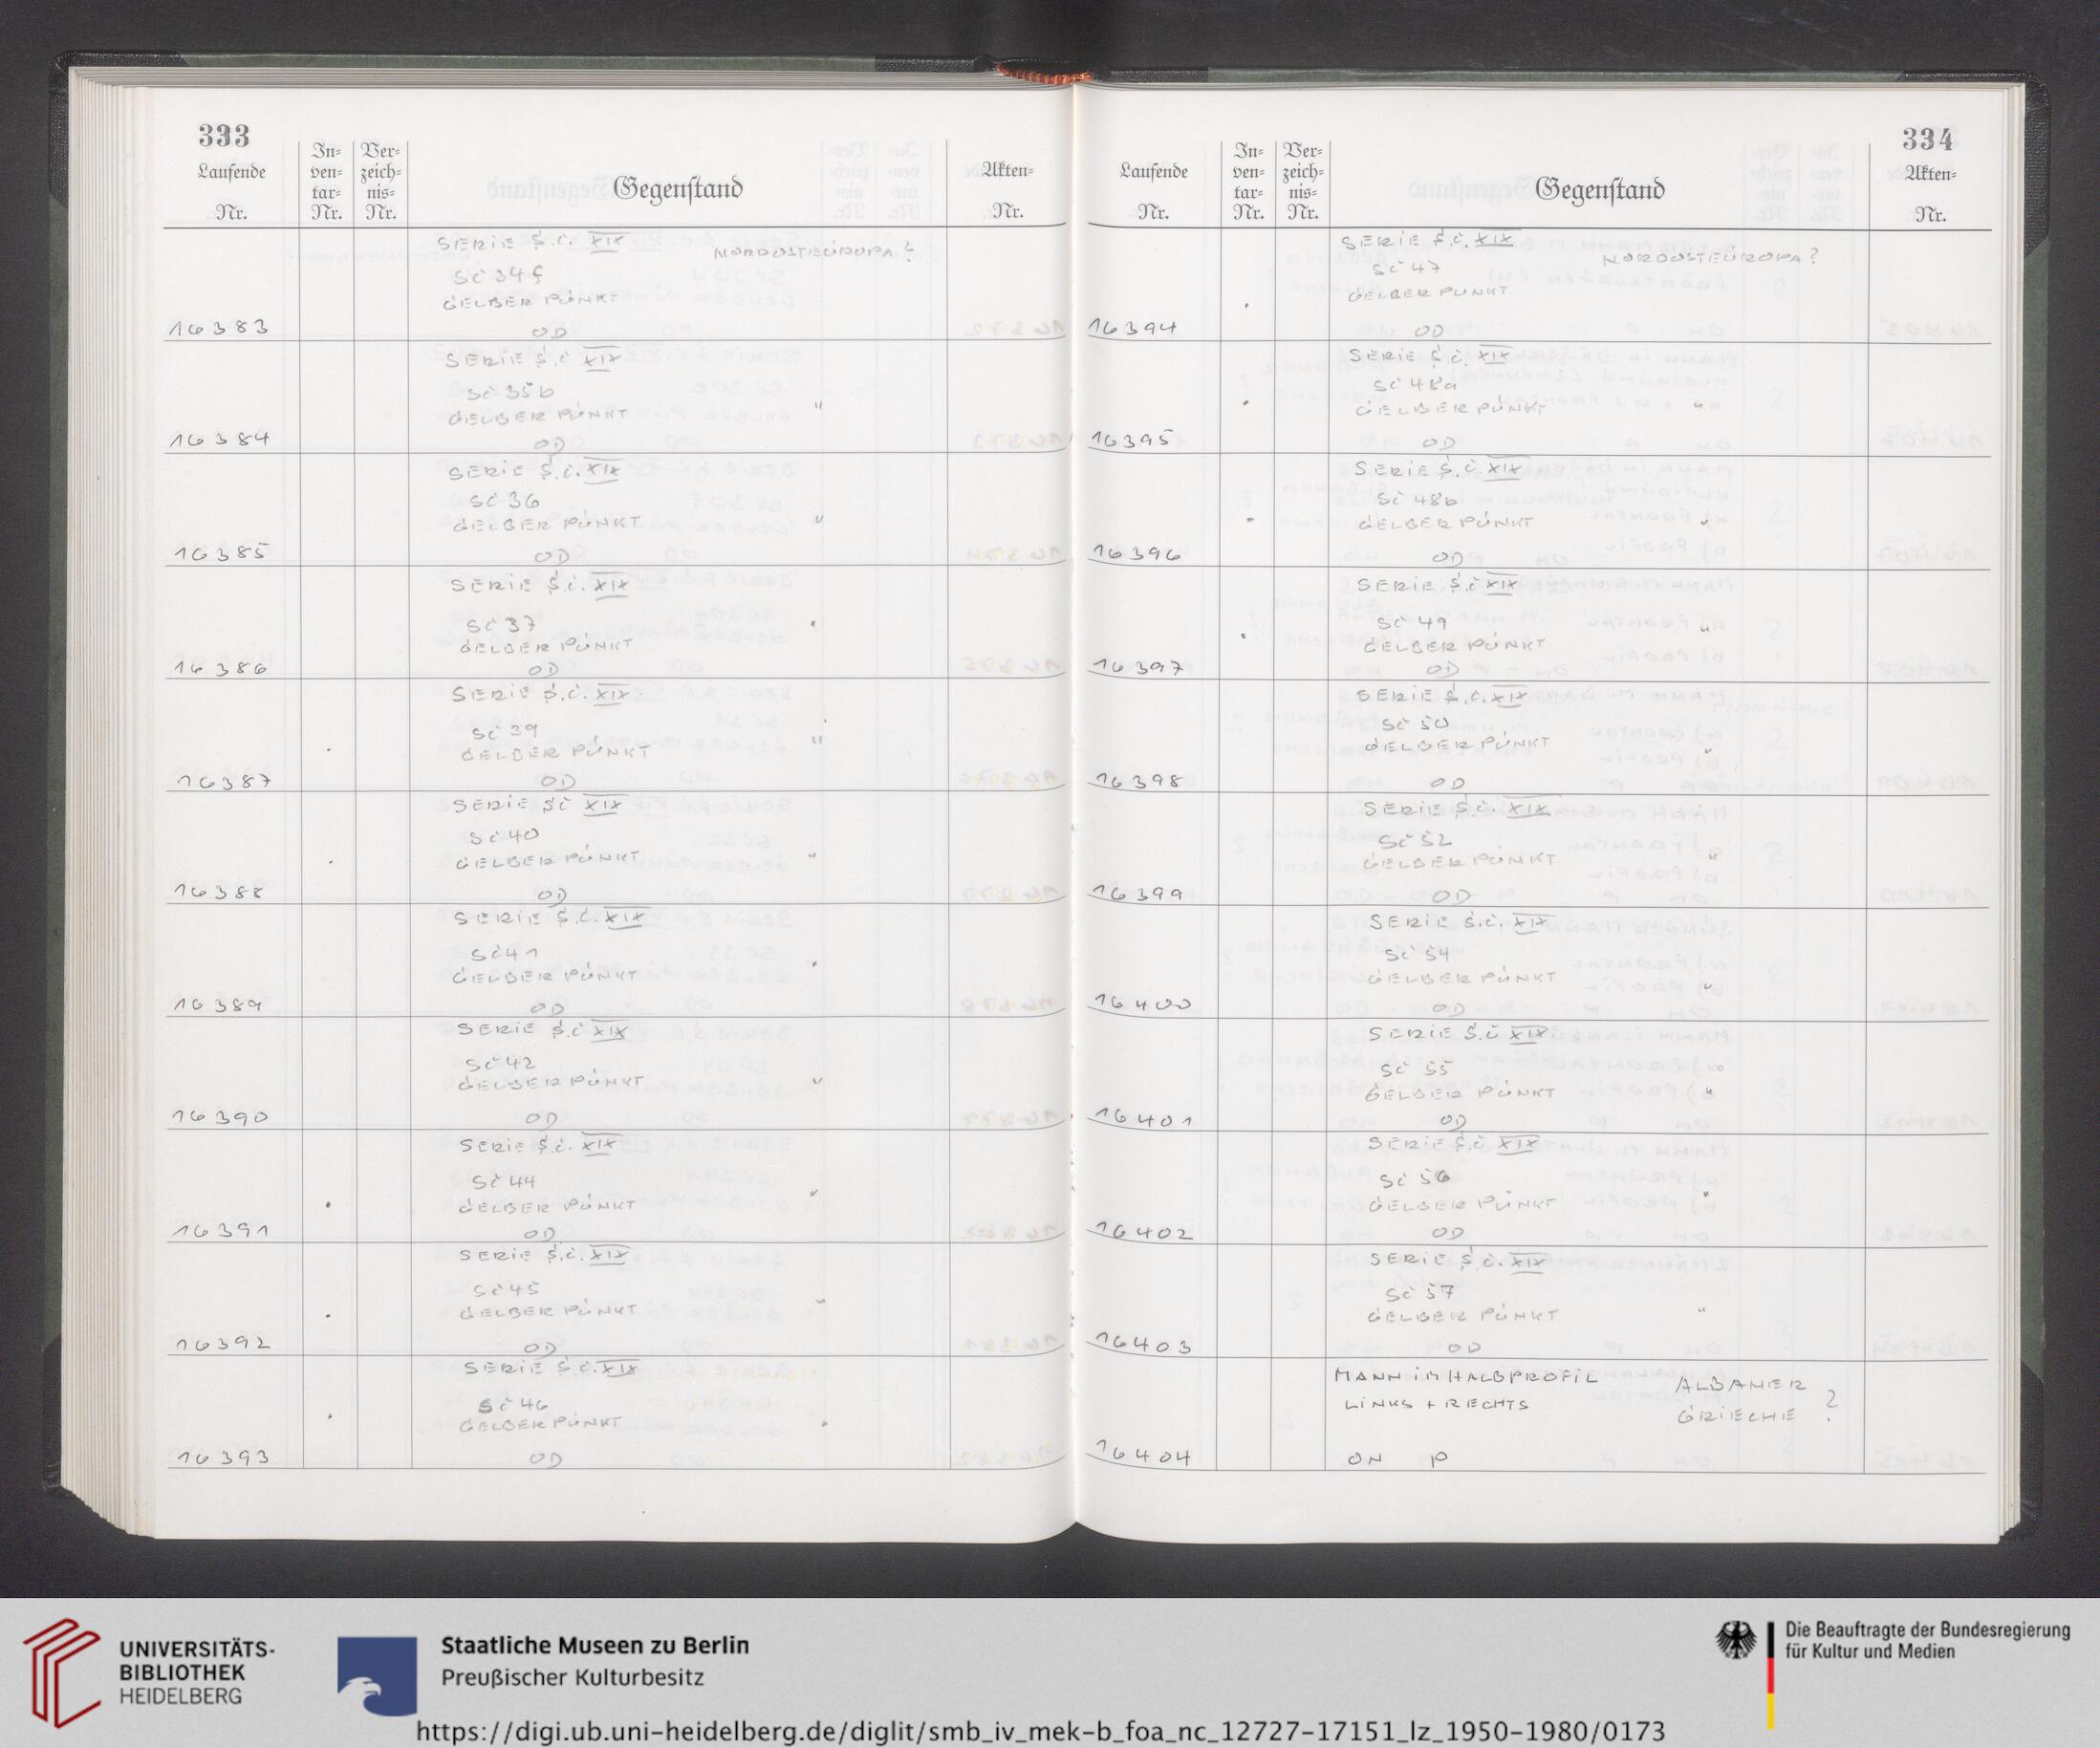 333
Laufende Nr.
In-ven-tar-Nr.
Ver-zeich-nis-Nr.
Gegenstand
Akten-Nr.
SERIE S.C. XIX NORDOSTEUROPA?
GELBER PUNKT
16383 OD
SERIE S.C XIX
SC 35b
GELBER PUNKT "
16384 OD
SERIE S.C. XIX
SC 36
GELBER PUNKT "
16385 OD
SERIE S.C. XIX
SC 37
GELBER PUNKT
16386 OD
SERIE S.C. XIX
SC 39
GELBER PUNKT "
16387 OD
SERIE SC XIX
SC 40
GELBER PUNKT "
16388 OD
SERIE S.C. XIX
SC 41
GELBER PUNKT
16389 OD
SERIE S.C XIX
SC 42
GELBER PUNKT "
16390 OD
SERIE S.C. XIX
SC 44
GELBER PUNKT "
16391 OD
SERIE S.C. XIX
SC 45
GELBER PUNKT "
16392 OD
SERIE S C. XIX
SC 46
GELBER PUNKT
16393 OD
334
Laufende Nr.
In-ven-tar-Nr.
Ver-zeich-nis-Nr.
Gegenstand
Akten-Nr.
SERIE S.C. XIX NORDOSTEUROPA?
SC 47
GELBER PUNKT
16394 OD
SERIE S.C. XIX
SC 48a
GELBER PUNKT "
16395 OD
SERIE S.C XIX
SC 48b
GELBER PUNKT "
16396 OD
SERIE S.C XIX
SC 49
GELBER PUNKT "
16397 OD
SERIE S.C. XIX
SC 50
GELBER PUNKT "
16398 OD
SERIE S.C. XIX
SC 52
GELBER PUNKT "
16399 OD
SERIE S.C. XIX
SC 54
GELBER PUNKT "
16400 OD
SERIE S.C XIX
SC 55
GELBER PUNKT "
16401 OD
SERIE S.C XIX
SC 56
GELBER PUNKT "
16402 OD
SERIE S C. XIX
SC 57
GELBER PUNKT "
16403 OD
MANN IM HALBPROFIL ALBANER
LINKS + RECHTS GRIECHE ?
16404 ON P
UNIVERSITÄTS-
BIBLIOTHEK
HEIDELBERG
Staatliche Museen zu Berlin
Preußischer Kulturbesitz
Die Beauftragte der Bundesregierung
für Kultur und Medien
https://digi.ub.uni-heidelberg.de/diglit/smb_iv_mek-b_foa_nc_12727-17151_lz_1950-1980/0173